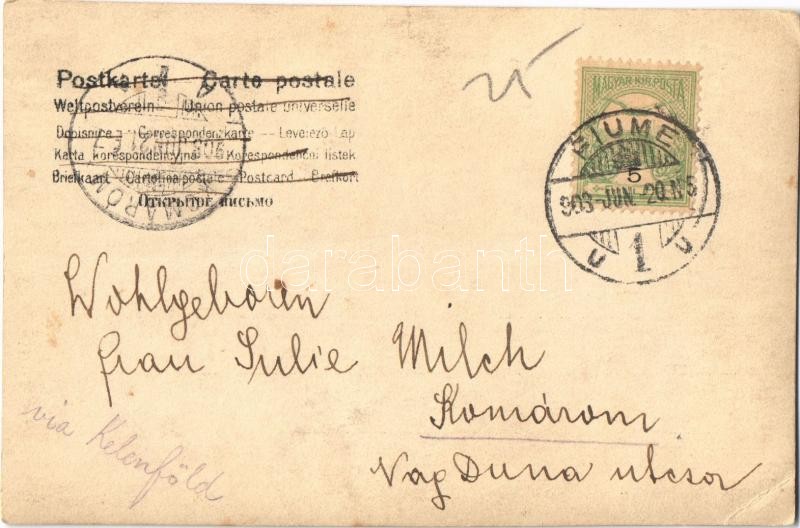 Postkarte. Carte postale
Weltpostverein. Union postale universelle
Dopisnice - Correspondenzkarte - Levelező Lap
Karta korespondencyjna. Korespondenční lístek
Briefkaart Cartolina postale Postcard Brefkort
Открытое письмо
25
MAGYAR KIR. POSTA
5
FIUME
903 JUN. 20. N 5
U 1 U
KOMÁROM
903 JUN 21
Wohlgeboren
Frau Julie Milch
Komárom
Nag Duna utcsa
via Kelenföld
darabanth